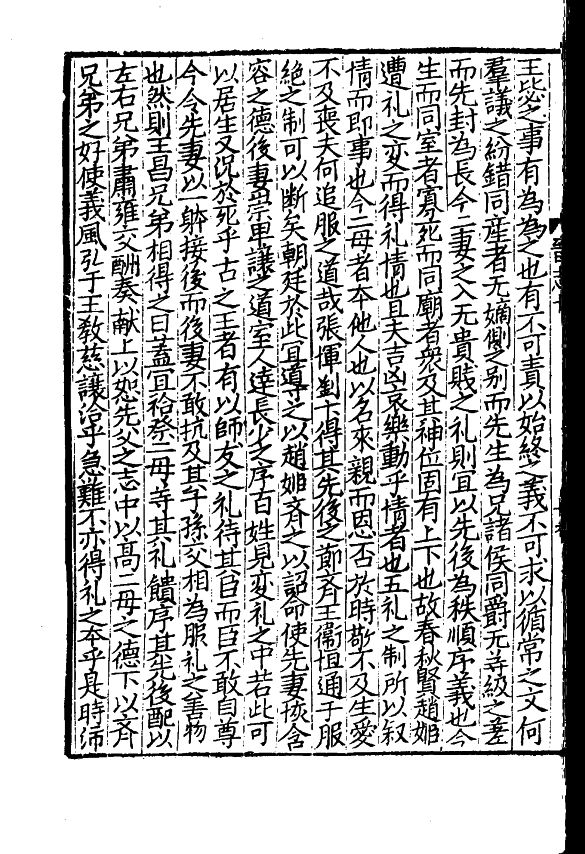 王毖之事有為為之也有不可責以始終之義不可求以循常之文何
羣議之紛錯同産者无嫡側之别而先生為兄諸侯同爵无等級之差
而先封為長今二妻之入无貴賤之礼則宜以先後為秩順序義也今
生而同室者寡死而同廟者衆及其神位固有上下也故春秋賢趙姬
遭礼之变而得礼情也且夫吉凶哀樂動乎情者也五礼之制所以叙
情而即事也今二母者本他人也以名來親而恩否於時敬不及生愛
不及喪夫何追服之道哉張惲劉卞得其先後之節齐王衞恒通于服
絶之制可以断矣朝廷於此宜導之以趙姬齐之以詔命使先妻㧡含
容之德後妻崇卑讓之道室人達長少之序百姓見変礼之中若此可
以居生又况於死乎古之王者有以師友之礼待其臣而臣不敢自尊
今令先妻以一躰接後而後妻不敢抗及其子孫交相為服礼之善物
也然則王昌兄弟相得之日蓋宜祫祭二母等其礼饋序其先後配以
左右兄弟肅雍交酬奏献上以恕先父之志中以高二母之德下以齐
兄弟之好使義風弘于王教慈讓洽乎急難不亦得礼之本乎是時沛